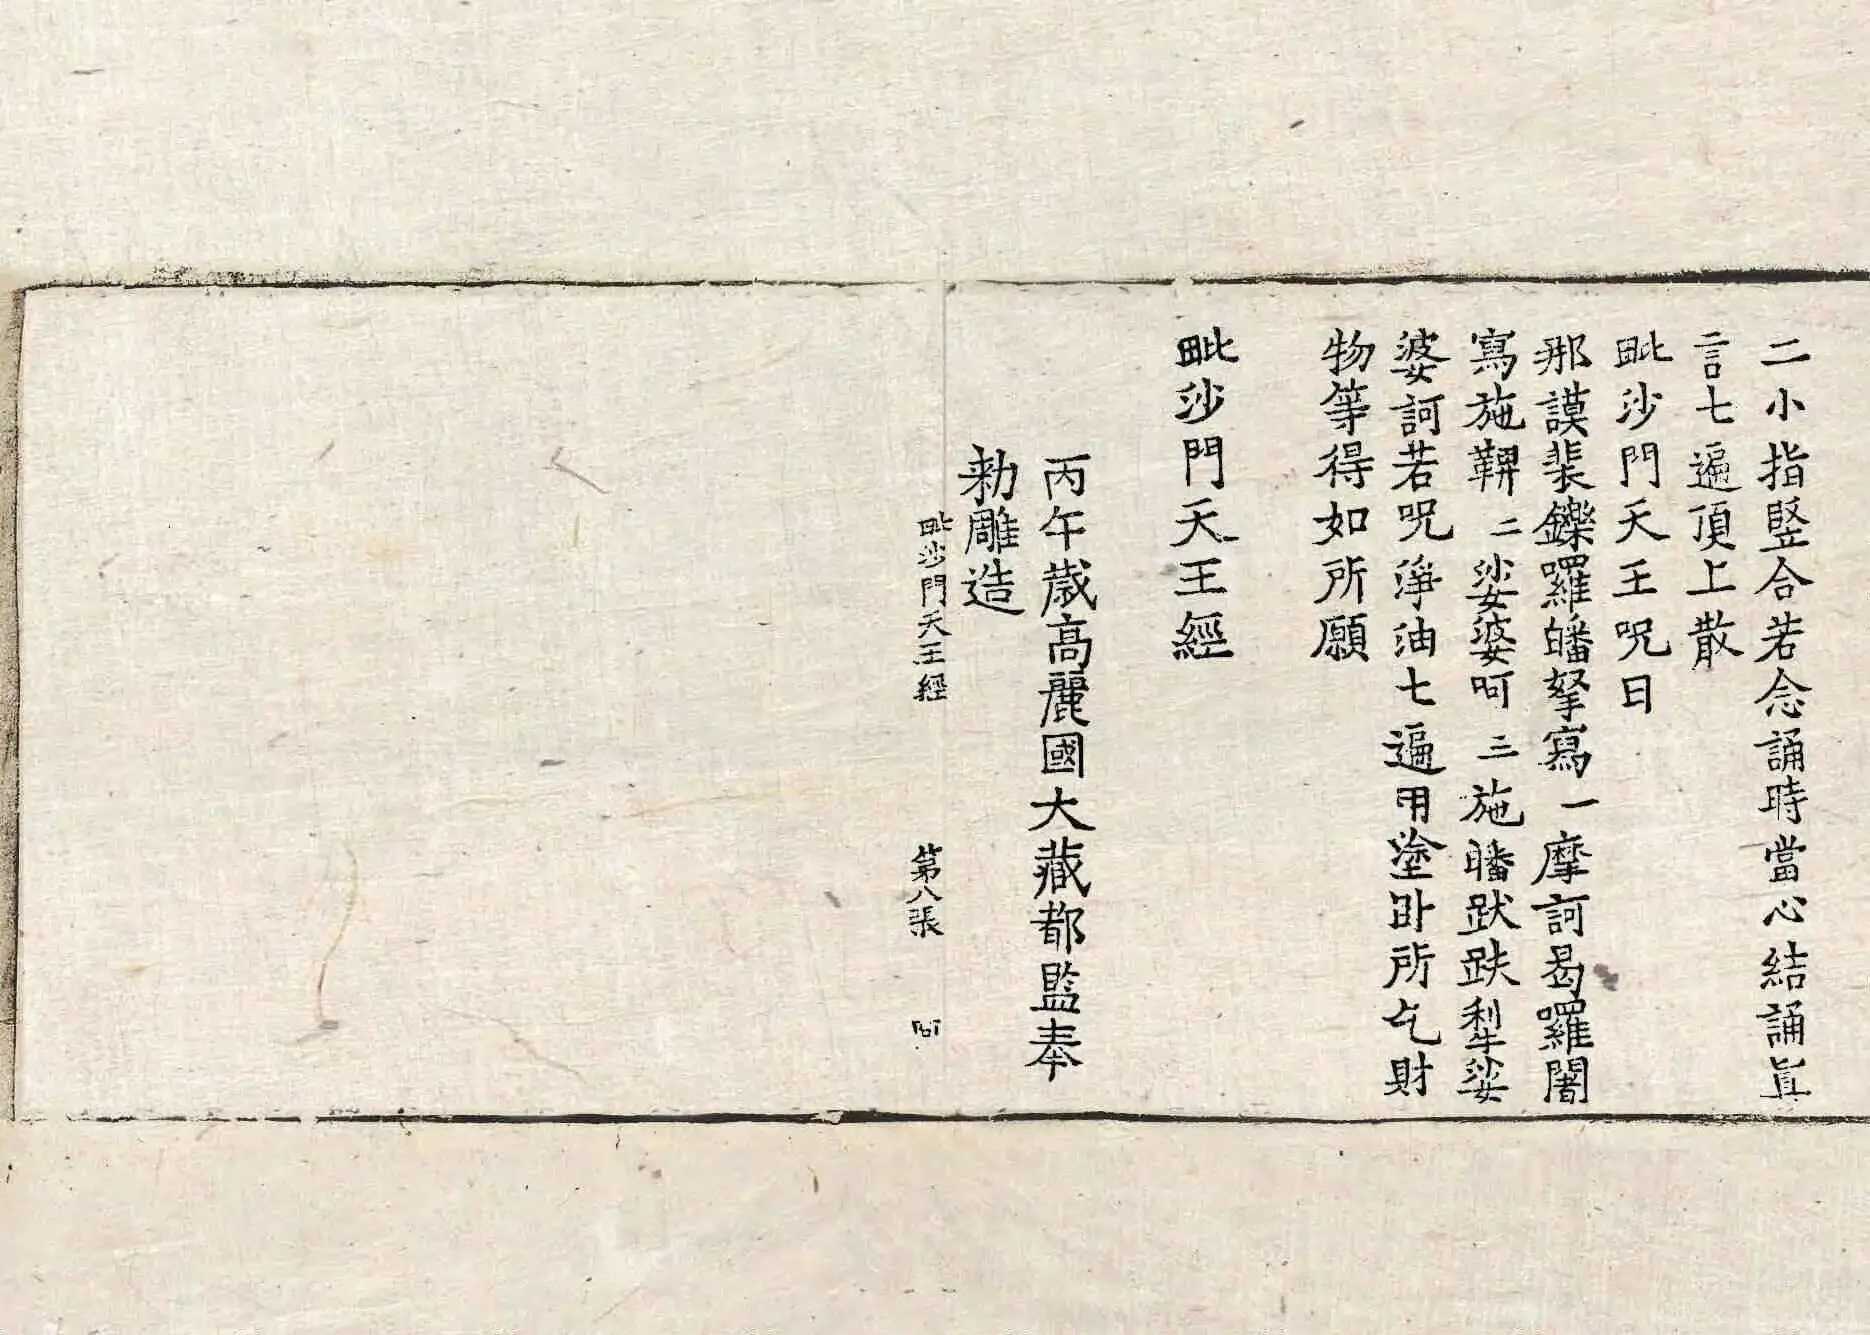 二小指竪合若念誦時當心結誦眞
言七遍頂上散
毗沙門天王呪曰
那謨裴鑠囉皤拏寫一摩訶曷囉闍
寫施鞞二娑婆呵三施皤㹤跌犁娑
婆訶若呪淨油七遍用塗卧所乞財
物等得如所願
毗沙門天王經
丙午歲高麗國大藏都監奉
勅雕造
毗沙門天王經 第八張